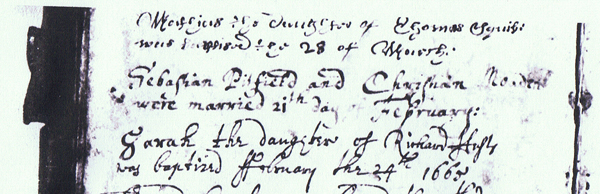 the daughter of Thomas
was the 28 of March
Sebastian Pitfield and Christian
were married 21th day of February:
Sarah the daughter of Richard
was baptized ffebruary the 24th 1665